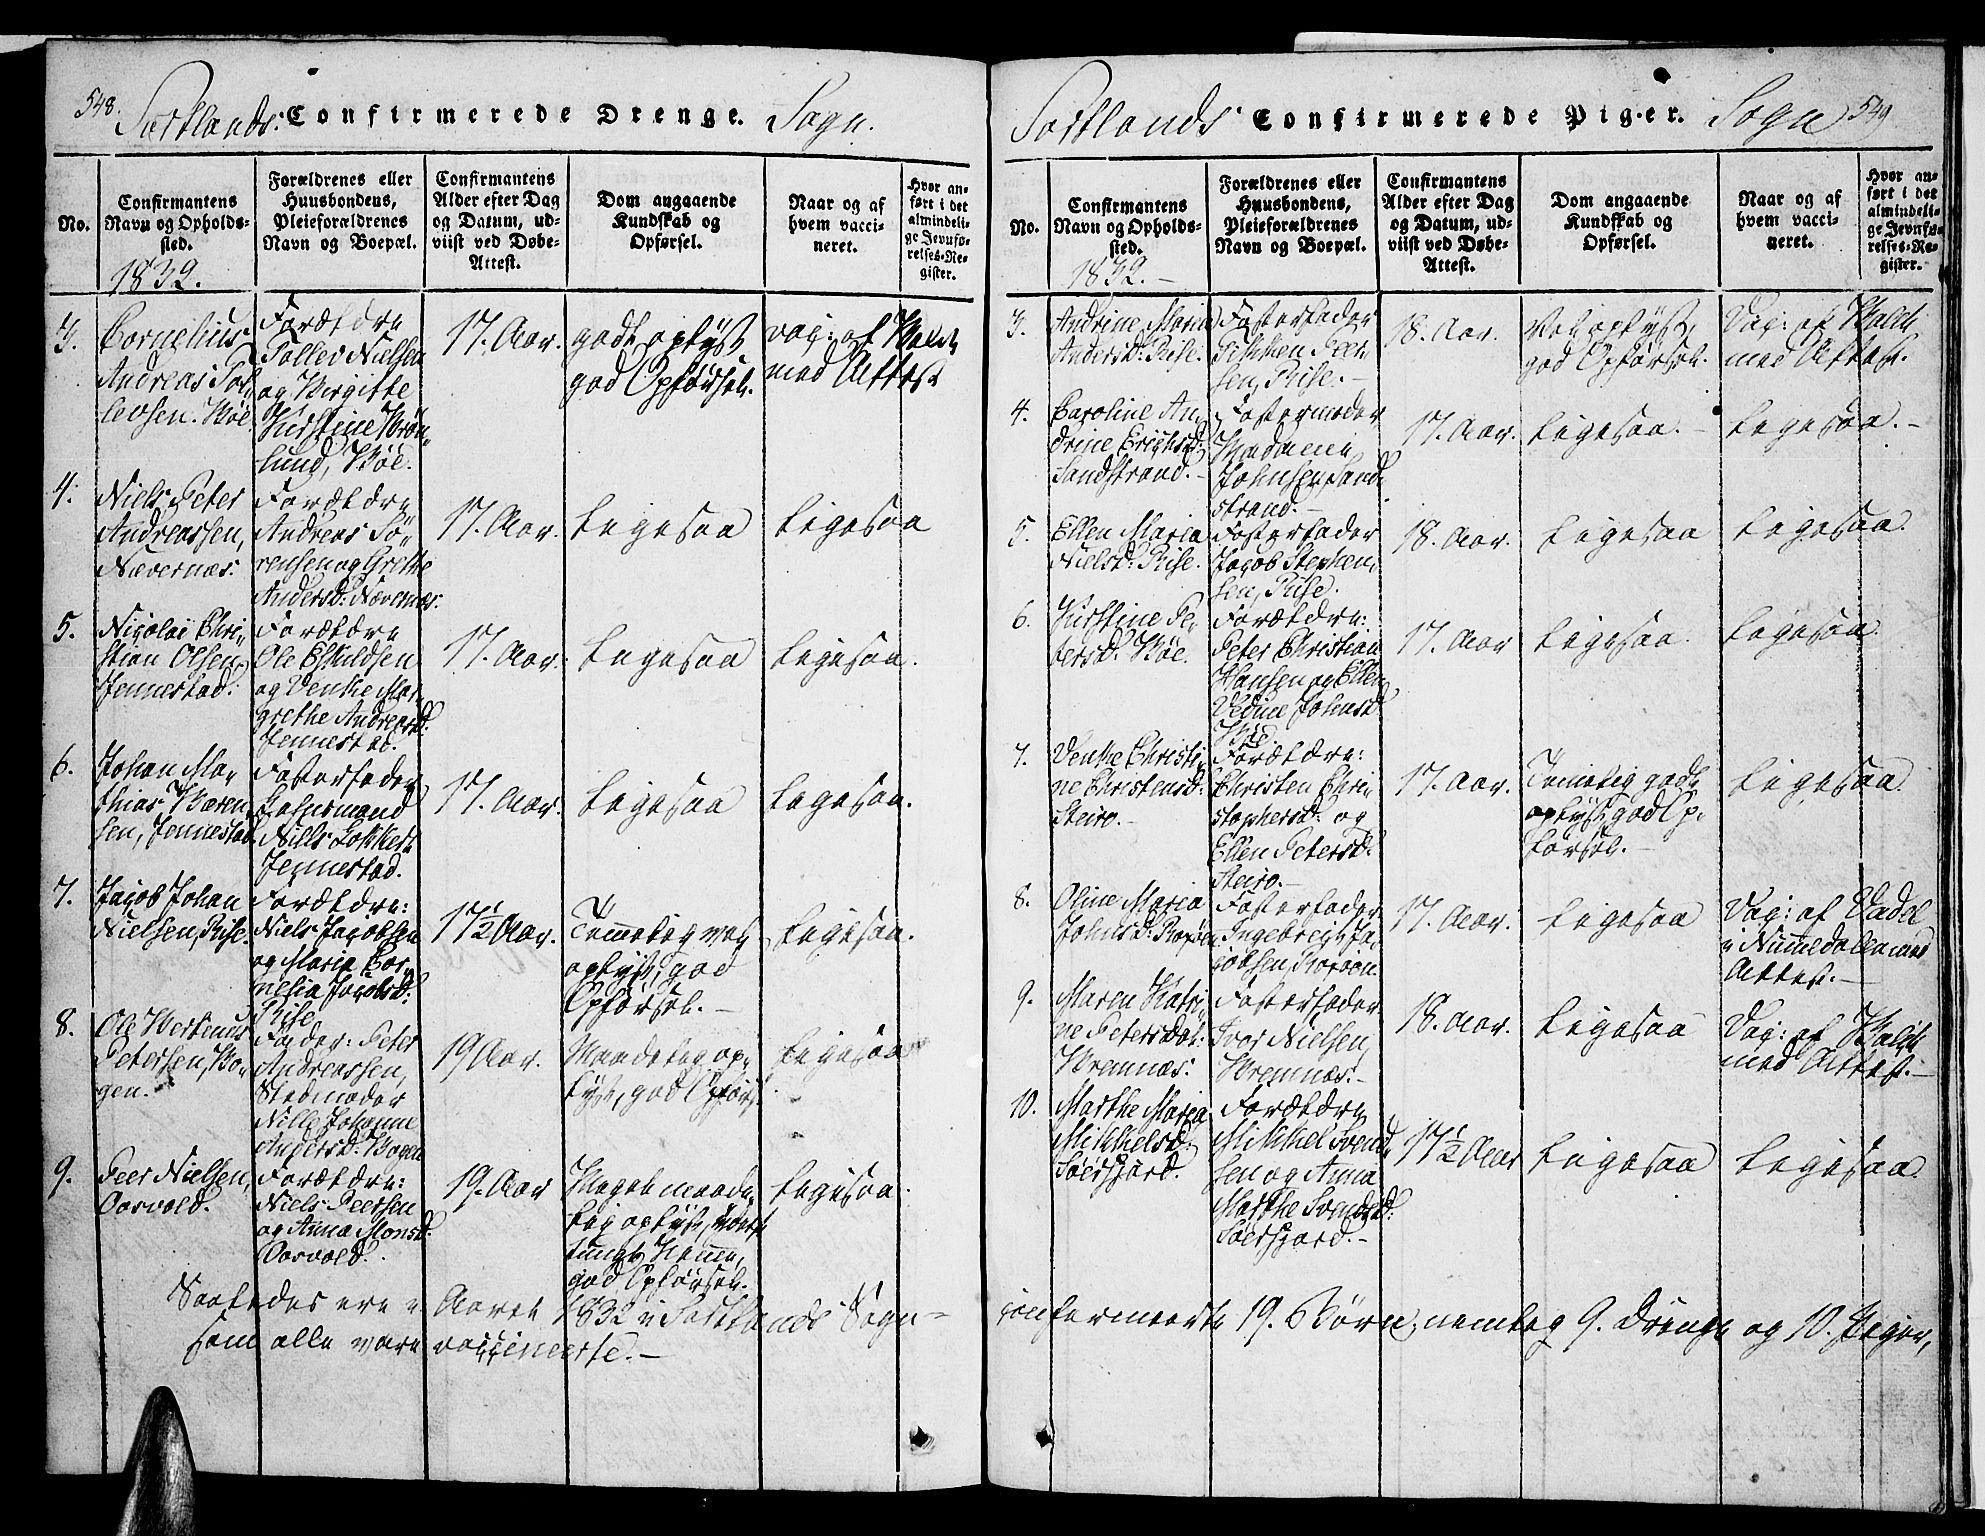 548.
Sortlands: Confirmerede Drenge. Sogn.
No.
Confirmantens
Navn og Opholds-
sted.
1832.
Forældrenes eller
Huusbondens,
Pleieforældrenes
Navn og Boepæl.
Confirmantens
Alder efter Dag
og Datum, ud-
viist ved Døbe-
Attest.
Dom angaaende
Kundskab og
Opførsel.
Naar og af
hvem vacci-
neret.
Hvor an-
ført i det
almindeli-
ge Jevnfø-
relses-Re-
gister.
3.
Cornelius
Andreas Tol-
levsen. Bøe
Forældre
Tollev Nielsen
og Birgitte
Kirstine Brøn-
lund, Bøe.
17. Aar.
godt oplyst
god Opførsel.
vac: af
med Attest
4.
Niels Peter
Andreassen,
Nævernæs.
Forældre
Andreas Sø-
rensen og Grethe
Andersd: Nævernæs.
17. Aar.
Ligesaa
Ligesaa
5.
Nicolai Chri-
stian Olsen,
Jennestad.
Forældre
Ole Eskildsen
og Venke Mar-
grethe Andreasd:
Jennestad.
17. Aar.
Ligesaa
Ligesaa.
6.
Johan Ma-
thias Bæren-
sen, Jennestad.
Fosterfader
Niels Lokkert
Jennestad.
17. Aar.
Ligesaa
Ligesaa.
7.
Jacob Johan
Nielsen, Rise.
Forældre:
Niels Jacobsen
og Maria Cor-
nelia Jacobsd:
Rise
17½ Aar.
Temmelig vel
oplyst, god
Opførsel.
Ligesaa.
8.
Ole
Petersen, Bo-
gen.
Fader: Peter
Andreassen,
Stedmoder
Nille Johanne
Andersd: Bogen
19 Aar.
Maadelig op-
lyst, god Opførs:
Ligesaa
9.
Peer Nielsen,
Oosvold.
Forældre:
Niels Peersen
og Anna Monsd:
Oosvold.
19. Aar
Meget maade-
lig oplyst,
god Opførsel.
Ligesaa.
Saaledes ere i Aaret 1832 i Sortlands Sogn
som alle vare vaccineerte.
Sortlands Confirmerede Piger. Sogn 549
No.
Confirmantens
Navn og Opholds-
sted.
1832.
Forældrenes eller
Huusbondens,
Pleieforældrenes
Navn og Boepæl.
Confirmantens
Alder efter Dag
og Datum, ud-
viist ved Døbe-
Attest.
Dom angaaende
Kundskab og
Opførsel.
Naar og af
hvem vacci-
neret.
Hvor an-
ført i det
almindeli-
ge Jevnfø-
relses-Re-
gister.
3.
Andrine Maria
Andersd: Rise.
Fosterfader
Peer-
sen, Rise.
18. Aar.
Vel oplyst,
god Opførsel.
Vac: af
med Attest.
4.
Caroline An-
drine Erichsd:
Sandstrand.
Fostermoder
Madame
Johnsen, Sand-
strand.
17. Aar.
Ligesaa.
Ligesaa.
5.
Ellen Maria
Nielsd: Rise.
Fosterfader
Jacob Stephen-
sen, Rise.
18. Aar.
Ligesaa
Ligesaa.
6.
Kirstine Pe-
tersd: Bøe.
Forældre:
Peter Christian
Hansen og Ellen
Vedine Johnsd:
Bøe.
17. Aar
Ligesaa.
Ligesaa.
7.
Venke Christi-
ne Christensd:
Steiro.
Forældre:
Christen Chri-
stophersd: og
Ellen Petersd:
Steiro.
17. Aar.
Temelig godt
oplyst, god Op-
førsel.
Ligesaa.
8.
Oline Maria
Johnsd:
Fosterfader
Ingebregt Ja-
cobsen,
17. Aar.
Ligesaa
Vac: af
i Nummedalen med
Attest.
9.
Maren Katri-
ne Petersdat:
Bremnæs:
Fosterfader
Ivor Nielsen,
Bremnæs.
18. Aar.
Ligesaa
Vac: af
med Attest.
10.
Marthe Maria
Mikkelsd:
Forældre
Mikkel Svend-
sen og Anna
Marthe Svendsd:
17½ Aar
Ligesaa
Ligesaa.
confirmeerte 19. Børn, nemlig 9. Drenge og 10. Piger,